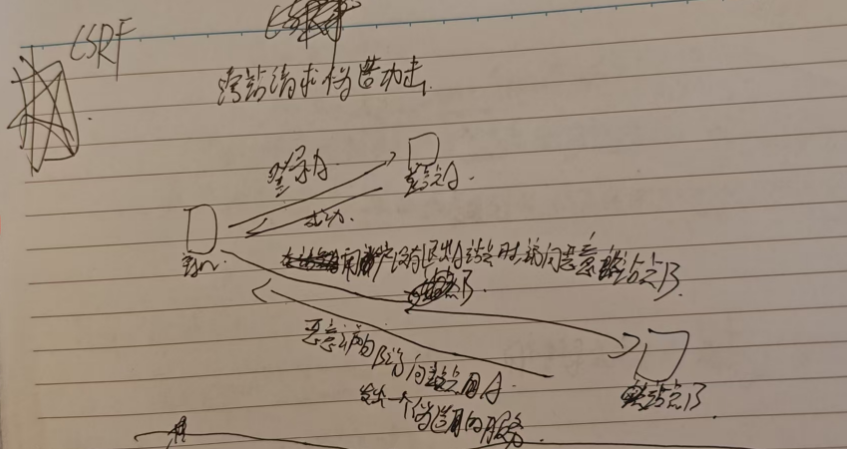 CSRF
跨站请求伪造攻击
登录A
站点A.
成功.
用户没有退出A站点时,访问恶意站点B.
恶意访问B后向站点A
发出一个伪造的服务.
站点B